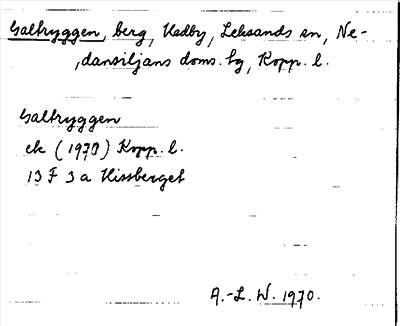 Saltryggen, berg, Hedby, Leksands sn, Ne-
dansiljans doms. hg, Kopp. l.
Saltryggen
ek (1970) Kopp. l.
13 F 3 a Hissberget
A.-L. W. 1970.